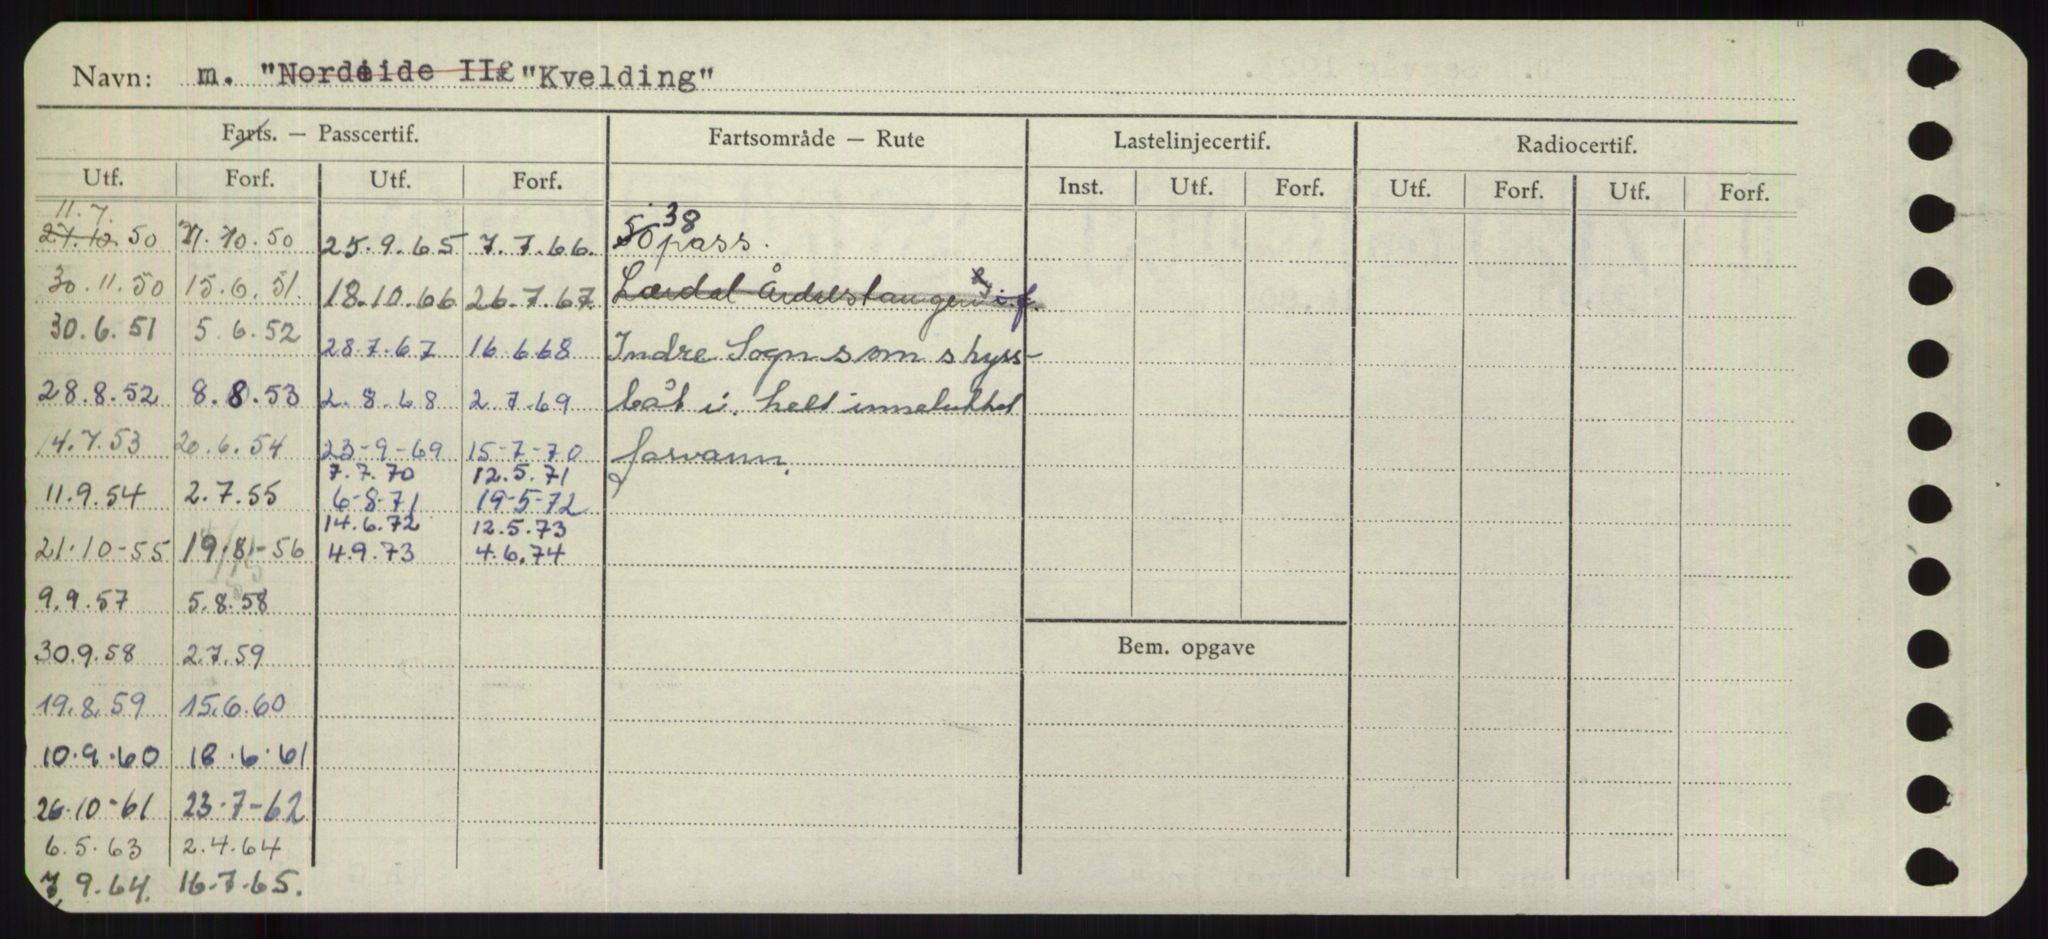 Navn: m. "Nordeide II" "Kvelding"
Farts. — Passcertif. Fartsområde — Rute Lastelinjecertif. Radiocertif.
Utf. Forf. Utf. Forf. Inst. Utf. Forf. Utf. Forf. Utf. Forf.
11.7.
27.10.50 11.10.50 25.9.65 7.7.66. 50 38 pass.
30.11.50 15.6.51. 18.10.66 26.7.67. Lærdal Årdalstangen i.f.
30.6.51 5.6.52 28.7.67 16.6.68 Indre Sogn som skyss-
28.8.52 8.8.53 2.8.68 2.7.69 båt i. helt innelukket
14.7.53 20.6.54 23-9-69 15-7-70 farvann.
7.7.70 12.5.71
11.9.54 2.7.55 6-8-71 19-5-72
14.6.72 12.5.73
21-10-55 19.8-56 4.9.73 4.6.74
9.9.57 5.8.58
30.9.58 2.7.59 Bem. opgave
19.8.59 15.6.60
10.9.60 18.6.61
26.10-61 23-7-62
6.5.63 2.4.64
7.9.64. 16-7-65.